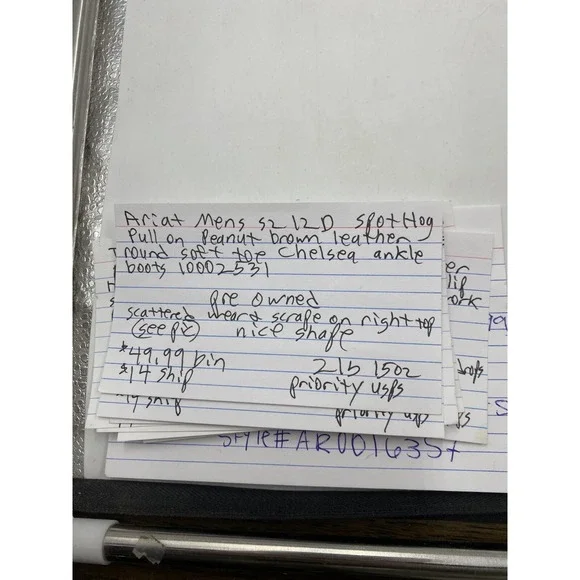 Ariat Mens sz 12D spotHog
Pull on Peanut brown leather
round soft toe Chelsea ankle
boots 10002531
pre owned
scattered wear & scrape on right top
(see pix) nice shape
$49.99 bin
$14 ship
2lb 15oz
priority usps
ship
priority usps
style# AR0016357